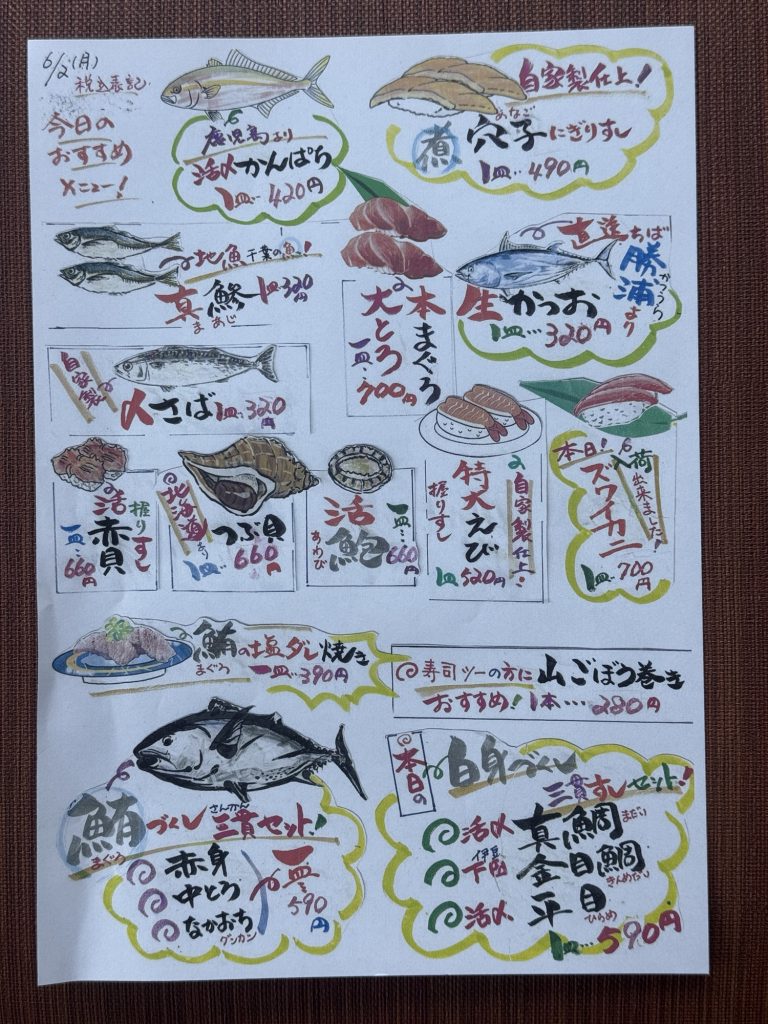 6/2(月)
税込表記
今日の
おすすめ
メニュー!
鹿児島より
活〆かんぱち
1皿…420円
自家製仕上!
あなご
煮穴子にぎりすし
1皿…490円
地魚千葉の魚!
真鯵1皿320円
まあじ
本まぐろ
大とろ
一皿…700円
直送ちば
勝浦より
かつうら
生かつお
1皿…320円
自家製
〆さば1皿…320円
握りすし
活赤貝
一皿…660円
北海道
つぶ貝
1皿…660円
活鮑
あわび
一皿…660円
自家製仕上!
特大えび
握りすし
1皿520円
本日!入荷出来ました!
ズワイカニ
1皿…700円
鮪の塩ダレ焼き
まぐろ
一皿…390円
寿司ツーの方に
おすすめ!
山ごぼう巻き
1本…280円
鮪づくし三貫セット!
まぐろ
さんかん
赤身
中とろ
なかおち
グンカン
一皿…590円
本日の
白身づくし
三貫すしセット!
活〆真鯛
まだい
伊豆
下田金目鯛
きんめだい
活〆平目
ひらめ
1皿…590円